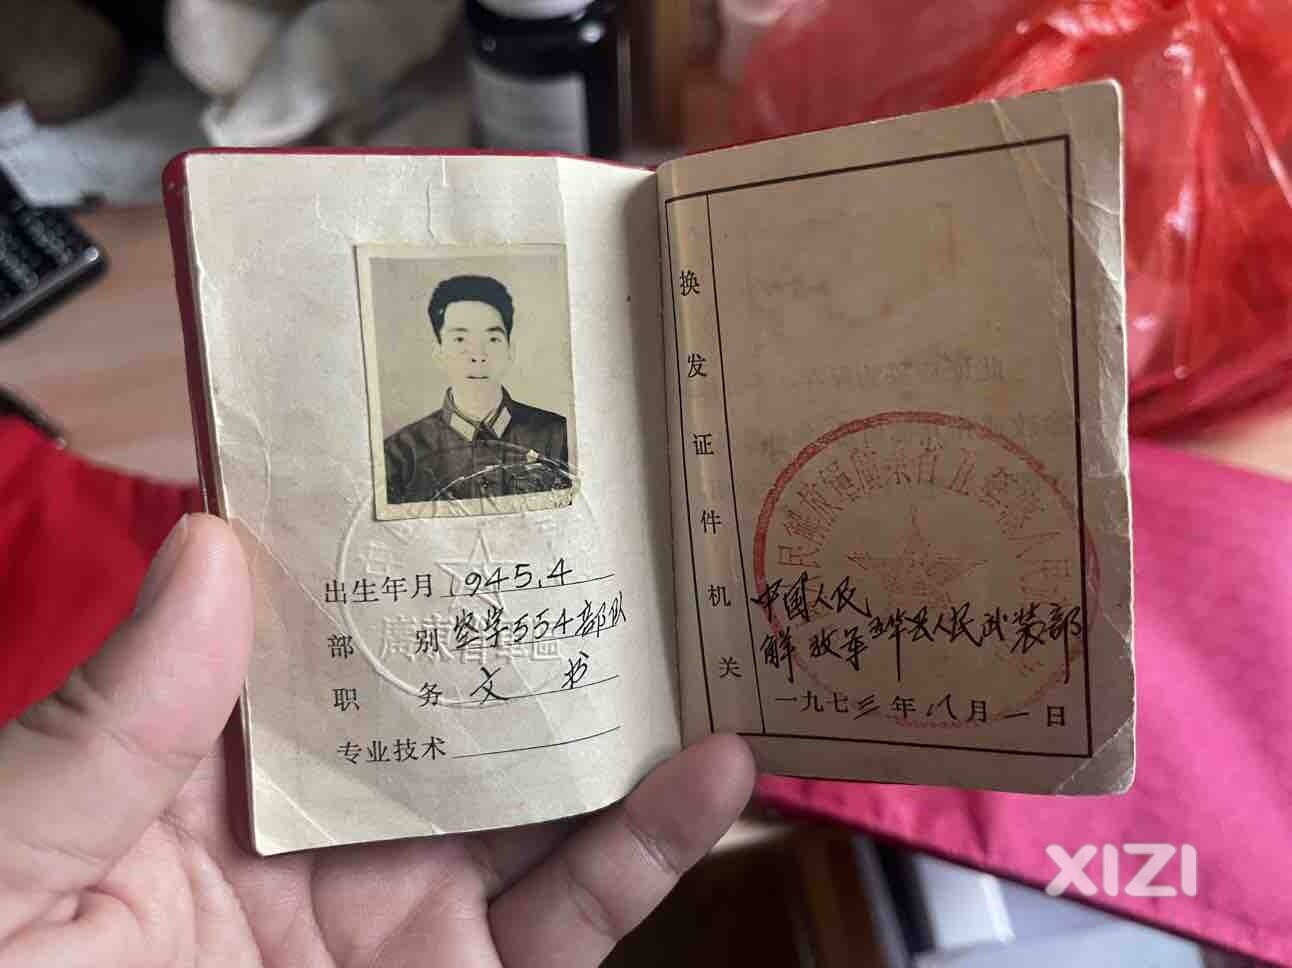 出生年月 1945.4
部别 空字554部队
职务 文书
专业技术
换发证件机关
中国人民
解放军五华县人民武装部
一九七三年八月一日
XIZI